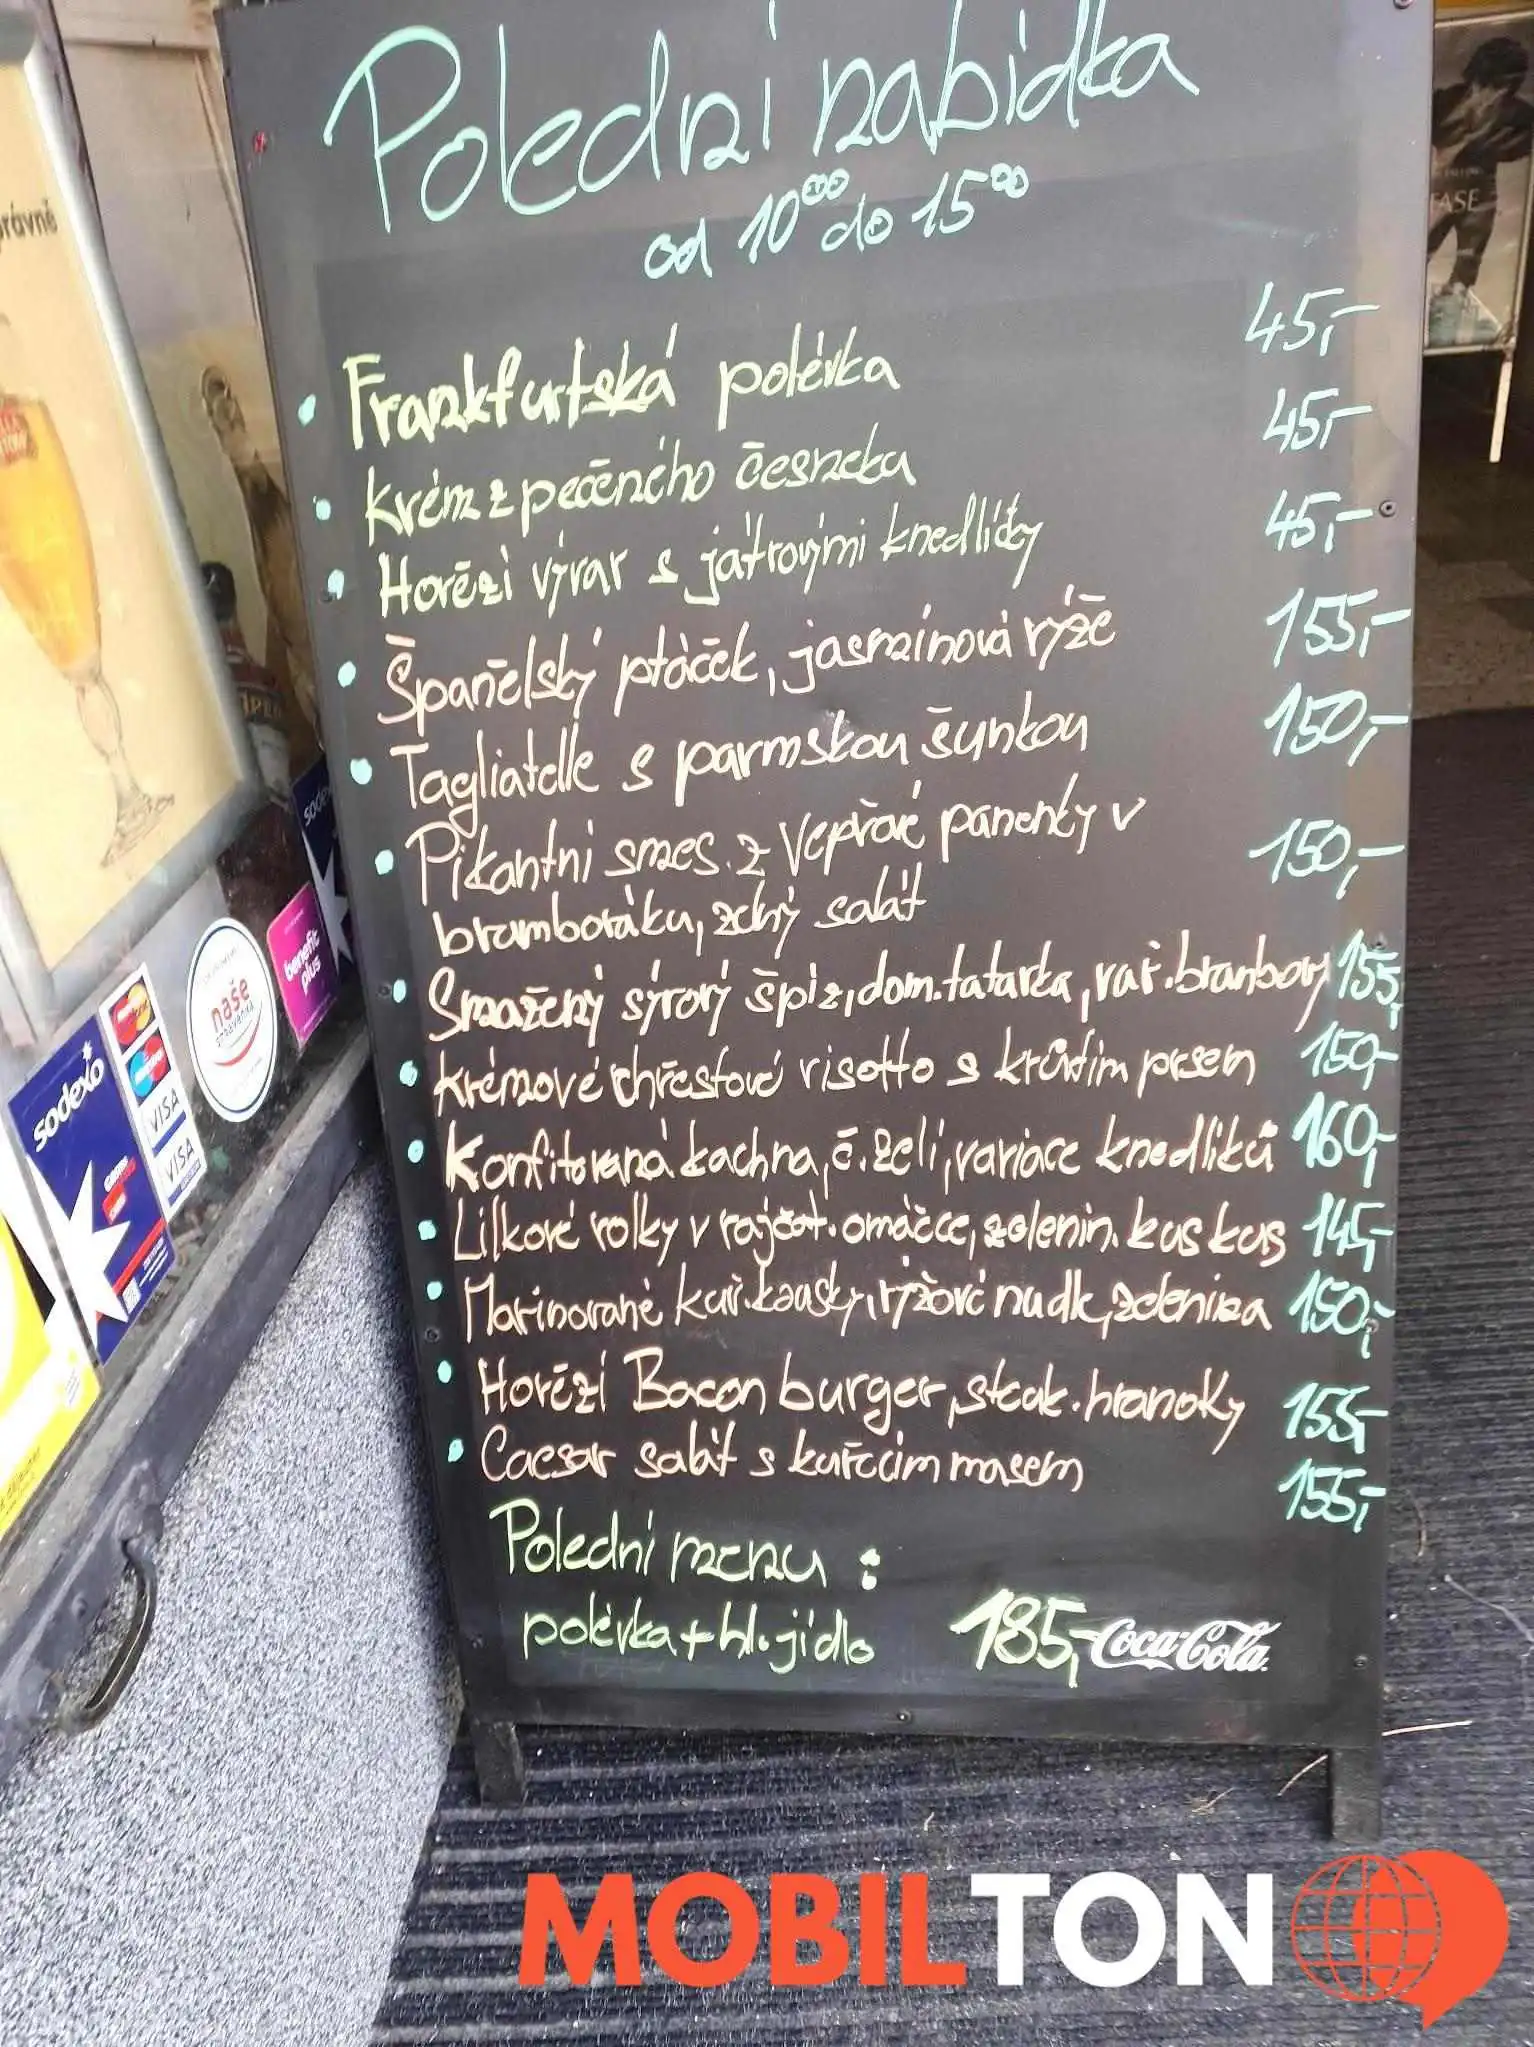 Polední nabídka
od 10⁰⁰ do 15⁰⁰
• Frankfurtská polévka 45,-
• Krém z pečeného česneku 45,-
• Hovězí vývar s játrovými knedlíčky 45,-
• Španělský ptáček, jasmínová rýže 155,-
• Tagliatelle s parmskou šunkou 150,-
• Pikantní směs z vepřové panenky v
bramboráku, zelný salát 150,-
• Smažený sýrový špíz, dom. tatarka, vař. brambory 155,-
• Krémové chřestové risotto s krůtím prsem 150,-
• Konfitovaná kachna, č. zelí, variace knedlíků 160,-
• Lilkové rolky v rajčat. omáčce, zelenin. kus kus 145,-
• Marinované kuř. kousky, rýžové nudle, zelenina 150,-
• Hovězí Bacon burger, steak. hranolky 155,-
• Caesar salát s kuřecím masem 155,-
Polední menu :
polévka + hl. jídlo 185,-
Coca-Cola
sodexo
VISA
VISA
naše
stravenka
benefit
plus
sodexo
MOBILTON